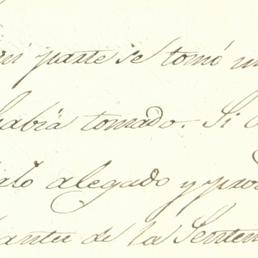 parte se tomó
había tomado. Si
alegado y pro
de la Senten